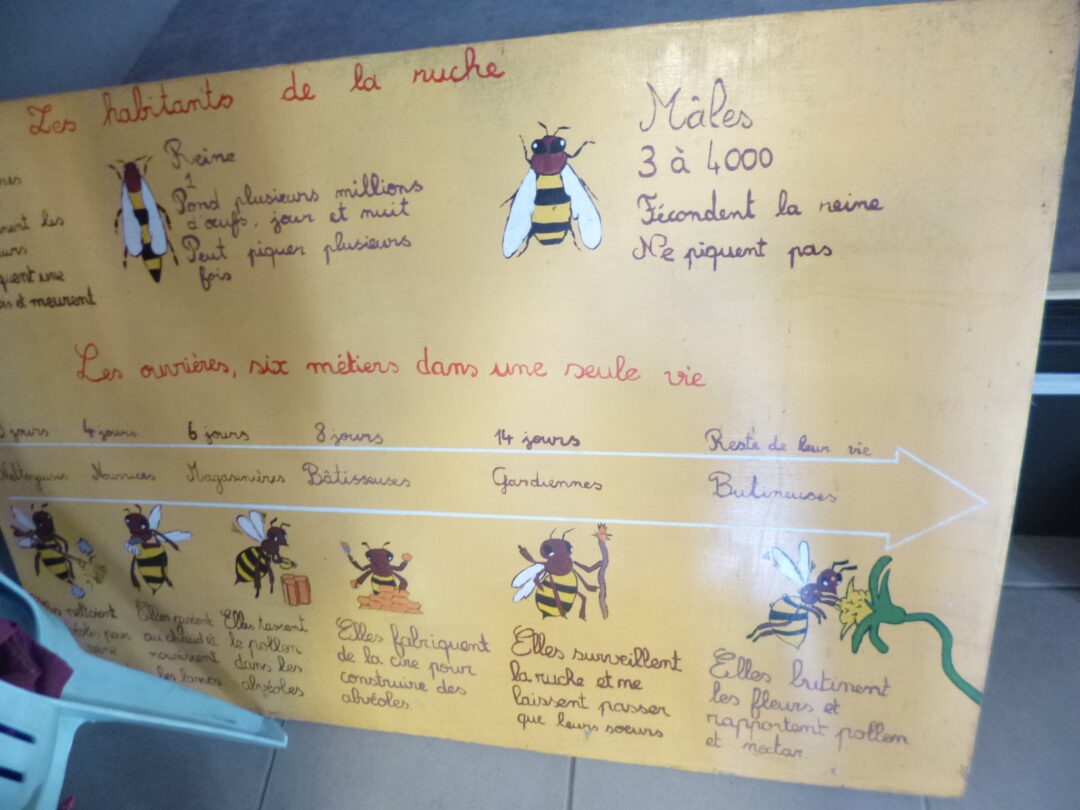 Les habitants de la ruche
les
et meurent
Reine
1
Pond plusieurs millions
d'œufs, jour et nuit
Peut piquer plusieurs
fois
Mâles
3 à 4000
Fécondent la reine
Ne piquent pas
Les ouvrières, six métiers dans une seule vie
jours
4 jours
6 jours
8 jours
14 jours
Reste de leur vie
Nettoyeuses
Nourrices
Magasinières
Bâtisseuses
Gardiennes
Butineuses
nettoient
Elles
au chaud et
nourrissent
les larves
Elles tassent
le pollen
dans les
alvéoles
Elles fabriquent
de la cire pour
construire des
alvéoles.
Elles surveillent
la ruche et ne
laissent passer
que leurs soeurs
Elles butinent
les fleurs et
rapportent pollen
et nectar